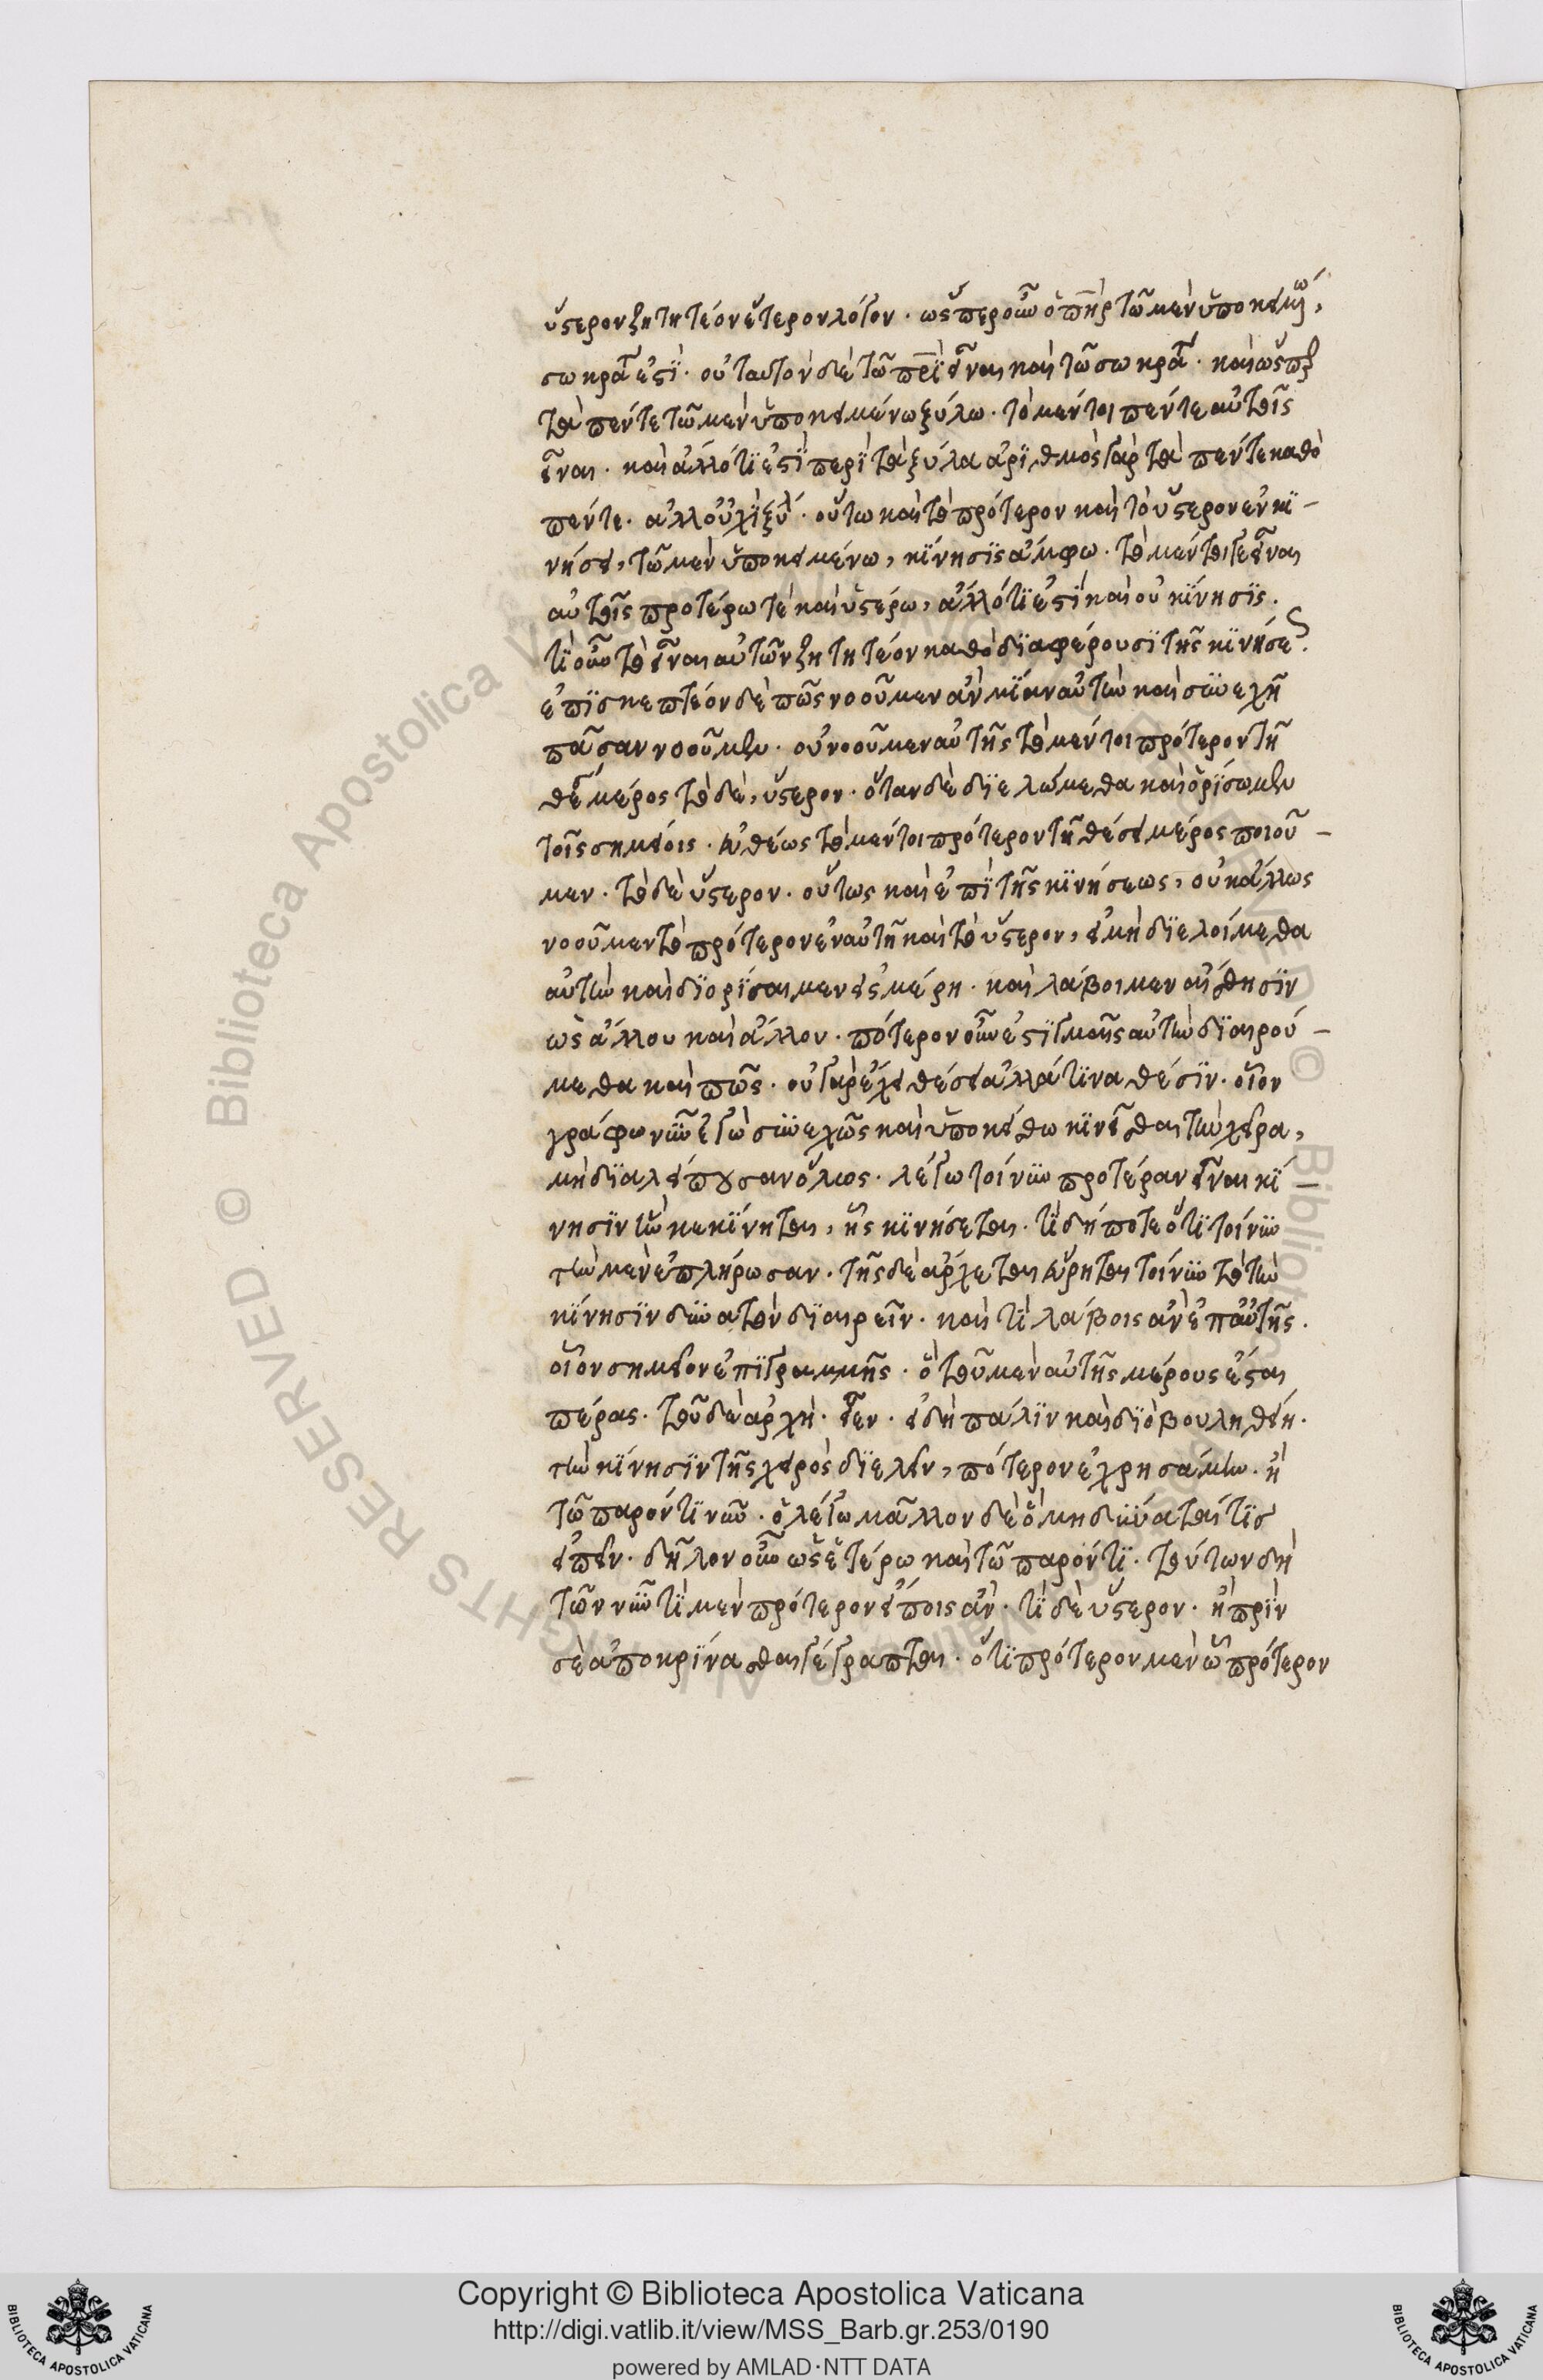 ὕστερον ζητητέον ἕτερον λόγον. ὥσπερ οὖν ὁ πηρ τῶ μὲν ὑποκειμένω,
σωκράτ ἐστὶ. οὐ ταυτὸν δὲ τῶ πρι εἶναι καὶ τῶ σωκράτ. καὶ ὥσπερ
τὰ πέντε τῶ μὲν ὑποκειμένω ξύλω. τὸ μέντοι πέντε αὐτοῖς
εἶναι. καὶ ἄλλό τι ἐστὶ περὶ τὰ ξύλα ἀριθμὸς γὰρ τὰ πέντε καθὸ
πέντε. ἀλλ' οὐχὶ ξύλ. οὕτω καὶ τὸ πρότερον καὶ τὸ ὕστερον ἐν κι-
νήσει, τῶ μὲν ὑποκειμένω, κίνησις ἄμφω. τὸ μέντοι γε εἶναι
αὐτοῖς προτέρω τὲ καὶ ὑστέρω, ἄλλό τι ἐστὶ καὶ οὐ κίνησις.
τί οὖν τὸ εἶναι αὐτῶν ζητητέον καθὸ διαφέρουσι τῆς κινήσεως.
ἐπισκεπτέον δὲ πῶς νοοῦμεν ἂν μίαν αὐτὴν καὶ συνεχῆ
πᾶσαν νοοῦμεν. οὐ νοοῦμεν αὐτῆς τὸ μέντοι πρότερον τῆ
θέσ μέρος τὸ δὲ, ὕστερον. ὅταν δὲ διελώμεθα καὶ ὁρίσωμεν
τοῖς σημείοις. εὐθέως τὸ μέντοι πρότερον τῆ θέσει μέρος ποιοῦ-
μεν. τὸ δὲ ὕστερον. οὕτως καὶ ἐπὶ τῆς κινήσεως, οὐκ ἄλλως
νοοῦμεν τὸ πρότερον ἐν αὐτῆ καὶ τὸ ὕστερον, εἰ μὴ διελοίμεθα
αὐτὴν καὶ διορίσαιμεν εἰς μέρη. καὶ λάβοιμεν αἴσθησιν
ὡς ἄλλου καὶ ἄλλου. πότερον οὖν ἐστὶ ἡμᾶς αὐτὴν διαιρού-
μεθα καὶ πῶς. οὐ γὰρ ἔχει θέσει ἀλλά τινα θέσιν. οἷον
γράφω νῦν ἐγὼ συνεχῶς καὶ ὑποκείσθω κινεῖσθαι τὴν χεῖρα,
μὴ διαλείπουσαν ὅλως. λέγω τοίνυν προτέραν εἶναι κί-
νησιν ἣν κεκίνηται, ἧς κινήσεται. τί δήποτε ὅτι τοίνυν
τὴν μὲν ἐπλήρωσαν. τῆς δὲ ἄρχεται εὕρηται τοίνυν τὸ τὴν
κίνησιν δυνατὸν διαιρεῖν. καὶ τί λάβοις ἂν ἐπ' αὐτῆς.
οἷον σημεῖον ἐπὶ γραμμῆς. ὃ τοῦ μὲν αὐτῆς μέρους ἔσται
πέρας. τοῦ δὲ ἀρχὴ. εἶεν. εἰ δὴ πάλιν καὶ διὸ βουληθείη.
τὴν κίνησιν τῆς χειρὸς διελεῖν, πότερον ἐχρησάμην. ἢ
τῶ παρόντι νῦν. ὃ λέγω μᾶλλον δὲ ὃ μὴ δύναταί τις
εἰπεῖν. δῆλον οὖν ὡς ἑτέρω καὶ τῶ παρόντι. τούτων δὴ
τῶν νῦν τί μὲν πρότερον εἴποις ἂν. τί δὲ ὕστερον. ἢ πρὶν
σὲ ἀποκρίνασθαι γέγραπται. ὅτι πρότερον μὲν ὧ πρότερον
Copyright © Biblioteca Apostolica Vaticana
http://digi.vatlib.it/view/MSS_Barb.gr.253/0190
powered by AMLAD·NTT DATA